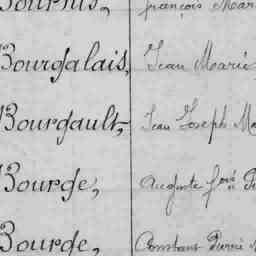 françois Mar
Bourgalais, Jean Marie
Bourgault, Jean Joseph Ma
Bourge, Auguste fçois
Bourge, Constant Pierre